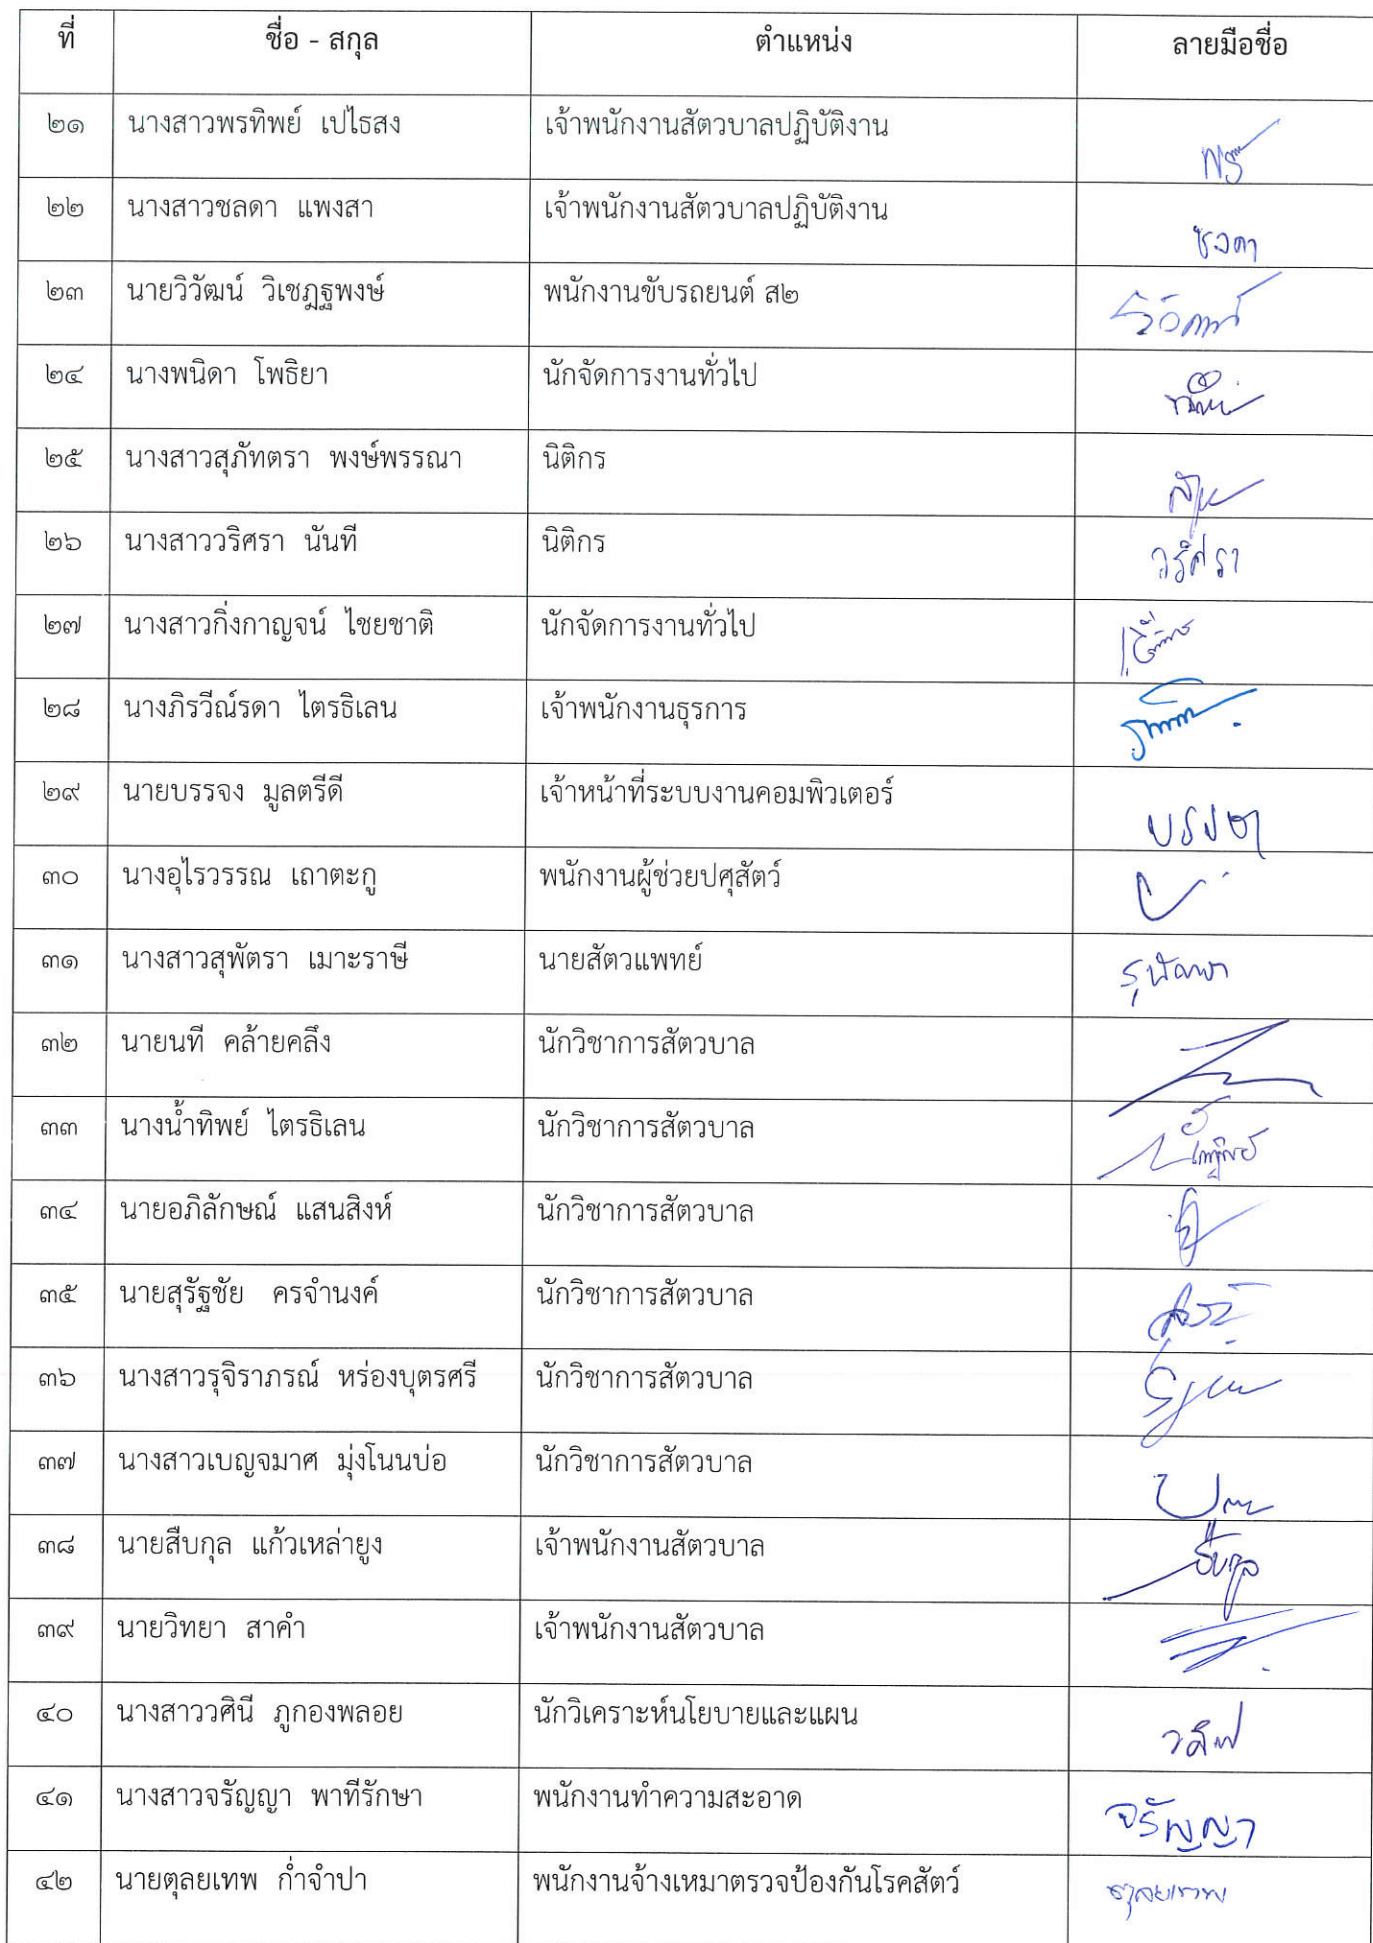 ที่ ชื่อ - สกุล ตำแหน่ง ลายมือชื่อ
๒๑ นางสาวพรทิพย์ เปไธสง เจ้าพนักงานสัตวบาลปฏิบัติงาน
๒๒ นางสาวชลดา แพงสา เจ้าพนักงานสัตวบาลปฏิบัติงาน ชลดา
๒๓ นายวิวัฒน์ วิเชฎฐพงษ์ พนักงานขับรถยนต์ ส๒
๒๔ นางพนิดา โพธิยา นักจัดการงานทั่วไป
๒๕ นางสาวสุภัทตรา พงษ์พรรณา นิติกร
๒๖ นางสาววริศรา นันที นิติกร วริศรา
๒๗ นางสาวกิ่งกาญจน์ ไชยชาติ นักจัดการงานทั่วไป
๒๘ นางภิรวีณ์รดา ไตรธิเลน เจ้าพนักงานธุรการ
๒๙ นายบรรจง มูลตรีดี เจ้าหน้าที่ระบบงานคอมพิวเตอร์
๓๐ นางอุไรวรรณ เถาตะกู พนักงานผู้ช่วยปศุสัตว์
๓๑ นางสาวสุพัตรา เมาะราษี นายสัตวแพทย์ สุพัตรา
๓๒ นายนที คล้ายคลึง นักวิชาการสัตวบาล
๓๓ นางน้ำทิพย์ ไตรธิเลน นักวิชาการสัตวบาล
๓๔ นายอภิลักษณ์ แสนสิงห์ นักวิชาการสัตวบาล
๓๕ นายสุรัฐชัย ครจำนงค์ นักวิชาการสัตวบาล
๓๖ นางสาวรุจิราภรณ์ หร่องบุตรศรี นักวิชาการสัตวบาล
๓๗ นางสาวเบญจมาศ มุ่งโนนบ่อ นักวิชาการสัตวบาล
๓๘ นายสืบกุล แก้วเหล่ายูง เจ้าพนักงานสัตวบาล สืบกุล
๓๙ นายวิทยา สาคำ เจ้าพนักงานสัตวบาล
๔๐ นางสาววศินี ภูกองพลอย นักวิเคราะห์นโยบายและแผน
๔๑ นางสาวจรัญญา พาทีรักษา พนักงานทำความสะอาด จรัญญา
๔๒ นายตุลยเทพ ก่ำจำปา พนักงานจ้างเหมาตรวจป้องกันโรคสัตว์ ตุลยเทพ